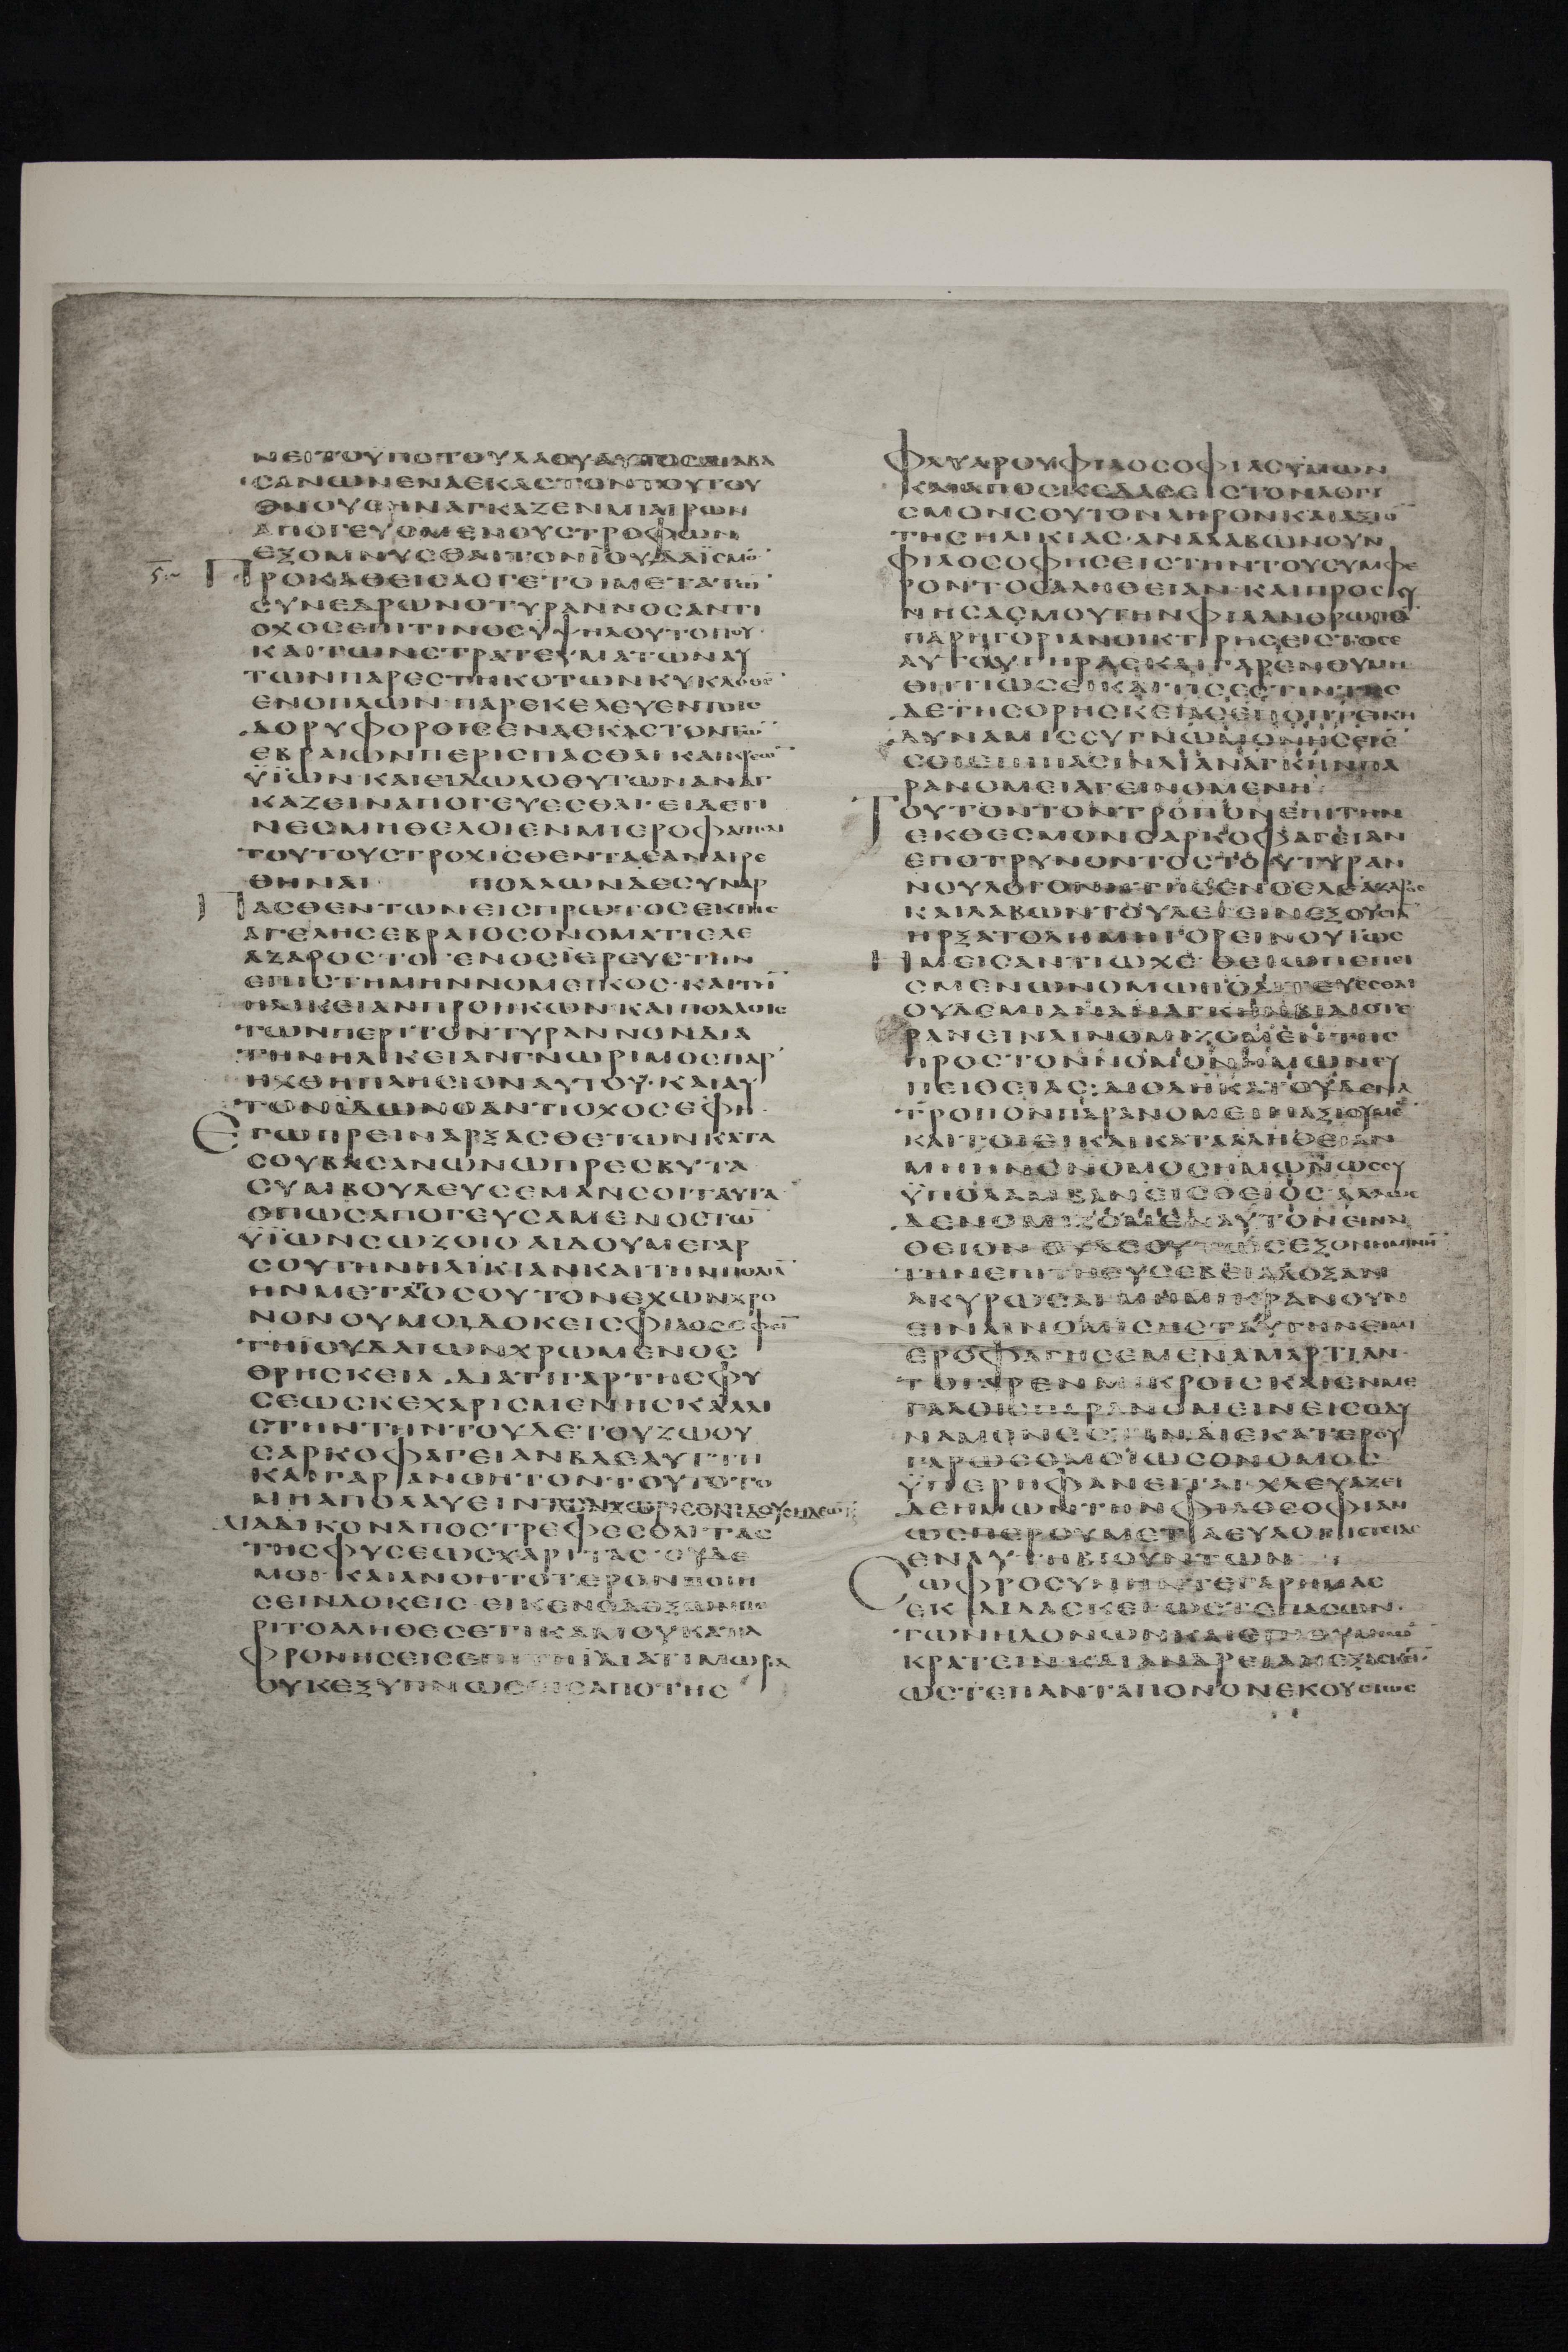 ΝΕΙΤΟΥΠΟΤΟΥΛΑΟΥΑΥΤΟCΔΙΑΒΑ
CΑΝΩΝΕΝΑΕΚΑCΤΟΝΤΟΥΤΟΥ
ΘΝΟΥCΗΝΑΓΚΑΖΕΝΜΙΑΡΩΝ
ΑΠΟΓΕΥΟΜΕΝΟΥCΤΡΟΦΩΝ
ΕΞΟΜΝΥCΘΑΙΤΟΝΪΟΥΔΑΪCΜΟ̅
ΠΡΟΚΑΘΕΙCΑCΓΕΤΟΙΜΕΤΑΤΩ̅
CΥΝΕΔΡΩΝΟΤΥΡΑΝΝΟCΑΝΤΙ
ΟΧΟCΕΠΙΤΙΝΟCΥΨΗΛΟΥΤΟΠΟΥ
ΚΑΙΤΩΝCΤΡΑΤΕΥΜΑΤΩΝΑΥ
ΤΩΝΠΑΡΕCΤΗΚΟΤΩΝΚΥΚΛΟΘΕ̅
ΕΝΟΠΛΩΝΠΑΡΕΚΕΛΕΥΕΝΤΟΙC
ΔΟΡΥΦΟΡΟΙCΕΝΑΕΚΑCΤΟΝΤΩ̅
ΕΒΡΑΙΩΝΠΕΡΙCΠΑCΘΑΙΚΑΙΚΡΕΩ̅
ΥΪΩΝΚΑΙΕΙΔΩΛΟΘΥΤΩΝΑΝΑΓ
ΚΑΖΕΙΝΑΠΟΓΕΥΕCΘΑΙ·ΕΙΔΕΤΙ
ΝΕCΜΗΘΕΛΟΙΕΝΜΙΕΡΟΦΑΓΗCΑΙ
ΤΟΥΤΟΥCΤΡΟΧΙCΘΕΝΤΑCΑΝΑΙΡΕ
ΘΗΝΑΙ ΠΟΛΛΩΝΔΕCΥΝΑΡ
ΠΑCΘΕΝΤΩΝΕΙCΠΡΩΤΟCΕΚΤΗC
ΑΓΕΛΗCΕΒΡΑΙΟCΟΝΟΜΑΤΙΕΛΕ
ΑΖΑΡΟCΤΟΓΕΝΟCΪΕΡΕΥCΤΗΝ
ΕΠΙCΤΗΜΗΝΝΟΜΕΙΚΟC·ΚΑΙΤΗ̅
ΗΛΙΚΕΙΑΝΠΡΟΗΚΩΝΚΑΙΠΟΛΛΟΙC
ΤΩΝΠΕΡΙΤΟΝΤΥΡΑΝΝΟΝΔΙΑ
ΤΗΝΗΛΙΚΕΙΑΝΓΝΩΡΙΜΟCΠΑΡ
ΗΧΘΗΠΛΗCΙΟΝΑΥΤΟΥ·ΚΑΙΑΥ
ΤΟΝΪΔΩΝΟΑΝΤΙΟΧΟCΕΦΗ
ΕΓΩΠΡΕΙΝΑΡΞΑCΘΕΤΩΝΚΑΤΑ
CΟΥΒΑCΑΝΩΝΩΠΡΕCΒΥΤΑ
CΥΜΒΟΥΛΕΥCΕΜΑΝCΟΙΤΑΥΤΑ
ΟΠΩCΑΠΟΓΕΥCΑΜΕΝΟCΤΩ̅
ΥΪΩΝCΩΖΟΙΟΑΙΔΟΥΜΕΓΑΡ
CΟΥΤΗΝΗΛΙΚΙΑΝΚΑΙΤΗΝΠΟΛΙΑ̅
ΗΝΜΕΤΑΤΟCΟΥΤΟΝΕΧΩΝΧΡΟ
ΝΟΝΟΥΜΟΙΔΟΚΕΙCΦΙΛΟCΟΦΕΙ̅
ΤΗΪΟΥΔΑΙΩΝΧΡΩΜΕΝΟC
ΘΡΗCΚΕΙΑ·ΔΙΑΤΙΓΑΡΤΗCΦΥ
CΕΩCΚΕΧΑΡΙCΜΕΝΗCΚΑΛΛΙ
CΤΗΝΤΗΝΤΟΥΔΕΤΟΥΖΩΟΥ
CΑΡΚΟΦΑΓΕΙΑΝΒΔΕΛΥΤΤΗ
ΚΑΙΓΑΡΑΝΟΗΤΟΝΤΟΥΤΟΤΟ
ΜΗΑΠΟΛΑΥΕΙΝΤΩΝΧΩΡΙCΟΝΙΔΟΥCΗΔΕΩ̅
ΔΙΑΔΙΚΟΝΑΠΟCΤΡΕΦΕCΘΑΙΤΑC
ΤΗCΦΥCΕΩCΧΑΡΙΤΑC·CΥΔΕ
ΜΟΙΚΑΙΑΝΟΗΤΟΤΕΡΟΝΠΟΙΗ
CΕΙΝΔΟΚΕΙC·ΕΙΚΕΝΟΔΟΞΩΝΠΕ
ΡΙΤΟΑΛΗΘΕCΕΤΙΚΑΙΤΟΥΚΑΤΑ
ΦΡΟΝΗCΕΙCΕΠΙΤΗΪΔΙΑΤΙΜΩΡΙΑ
ΟΥΚΕΞΥΠΝΩCΕΙCΑΠΟΤΗC
ΦΛΥΑΡΟΥΦΙΛΟCΟΦΙΑCΥΜΩΝ
ΚΑΙΑΠΟCΚΕΔΑCΕΙCΤΟΝΛΟΓΙ
CΜΟΝCΟΥΤΟΝΛΗΡΟΝΚΑΙΑΞΙΟ̅
ΤΗCΗΛΙΚΙΑC·ΑΝΑΛΑΒΩΝΟΥΝ
ΦΙΛΟCΟΦΗCΕΙCΤΗΝΤΟΥCΥΜΦΕ
ΡΟΝΤΟCΑΛΗΘΕΙΑΝ·ΚΑΙΠΡΟCΚΥ
ΝΗCΑCΜΟΥΤΗΝΦΙΛΑΝΘΡΩΠΟ̅
ΠΑΡΗΓΟΡΙΑΝΟΙΚΤΙΡΗCΕΙCΤΟCΕ
ΑΥΤΟΥΓΗΡΑCΚΑΙΓΑΡΕΝΟΥΜΗ
ΘΗΤΙΩCΕΙΚΑΙΤΙCΕCΤΙΝΤΗC
ΔΕΤΗCΘΡΗCΚΕΙΑCΕΠΟΠΤΕΙΚΗ
ΔΥΝΑΜΙCCΥΓΝΩΜΟΝΗCΕΙΕ̅
CΟΙΕΠΙΠΑCΙΝΔΙΑΝΑΓΚΗΝΠΑ
ΡΑΝΟΜΕΙΑΓΕΙΝΟΜΕΝΗ
ΤΟΥΤΟΝΤΟΝΤΡΟΠΟΝΕΠΙΤΗΝ
ΕΚΘΕCΜΟΝCΑΡΚΟΦΑΓΕΙΑΝ
ΕΠΟΤΡΥΝΟΝΤΟCΤΟΥΤΥΡΑΝ
ΝΟΥΛΟΓΟΝΗΤΗCΕΝΟΕΛΕΑΖΑΡΟC
ΚΑΙΛΑΒΩΝΤΟΥΛΕΓΕΙΝΕΞΟΥCΙΑ̅
ΗΡΞΑΤΟΔΗΜΗΓΟΡΕΙΝΟΥΤΩC
ΗΜΕΙCΑΝΤΙΩΧΕ·ΘΕΙΩΠΕΠΕΙ
CΜΕΝΩΝΟΜΩΠΟΛΙΤΕΥΕCΘΑΙ
ΟΥΔΕΜΙΑΝΑΝΑΓΚΗΝΒΙΑΙΟΤΕ
ΡΑΝΕΙΝΑΙΝΟΜΙΖΟΜΕΝΤΗC
ΠΡΟCΤΟΝΝΟΜΟΝΗΜΩΝΕΥ
ΠΕΙΘΕΙΑC·ΔΙΟΔΗΚΑΤΟΥΔΕΝΑ
ΤΡΟΠΟΝΠΑΡΑΝΟΜΕΙΝΑΞΙΟΥΜΕ̅
ΚΑΙΤΟΙΕΙΚΑΙΚΑΤΑΑΛΗΘΕΙΑΝ
ΜΗΗΝΟΝΟΜΟCΗΜΩΝΩCCΥ
ΥΠΟΛΑΜΒΑΝΕΙCΘΕΙΟC·ΑΛΛΩC
ΔΕΝΟΜΙΖΟΜΕΝΑΥΤΟΝΕΙΝΑΙ
ΘΕΙΟΝ·ΟΥΔΕΟΥΤΩCΕΞΟΝΗΜΙΝΗ̅
ΤΗΝΕΠΙΤΗΕΥCΕΒΕΙΑΔΟΞΑΝ
ΑΚΥΡΩCΑΙΜΗΜΙΚΡΑΝΟΥΝ
ΕΙΝΑΙΝΟΜΙCΗCΤΑΥΤΗΝΕΙΜΙ
ΕΡΟΦΑΓΗCΕΜΕΝΑΜΑΡΤΙΑΝ
ΤΟΓΑΡΕΝΜΙΚΡΟΙCΚΑΙΕΝΜΕ
ΓΑΛΟΙCΠΑΡΑΝΟΜΕΙΝΕΙCΟΔΥ
ΝΑΜΟΝΕCΤΙΝ·ΔΙΕΚΑΤΕΡΟΥ
ΓΑΡΩCΟΜΟΙΩCΟΝΟΜΟC
ΥΠΕΡΗΦΑΝΕΙΤΑΙ·ΧΛΕΥΑΖΕΙ
ΔΕΗΜΩΝΤΗΝΦΙΛΟCΟΦΙΑΝ
ΩCΠΕΡΟΥΜΕΤΑΕΥΛΟΓΙCΤΕΙΑC
ΕΝΑΥΤΗΒΙΟΥΝΤΩΝ
CΩΦΡΟCΥΝΗΝΤΕΓΑΡΗΜΑC
ΕΚΔΙΔΑCΚΕΙΩCΤΕΠΑCΩΝ
ΤΩΝΗΔΟΝΩΝΚΑΙΕΠΙΘΥΜΙΩ̅
ΚΡΑΤΕΙΝΚΑΙΑΝΔΡΕΙΑΝΕΞΑCΚΕΙ
ΩCΤΕΠΑΝΤΑΠΟΝΟΝΕΚΟΥCΙΩC